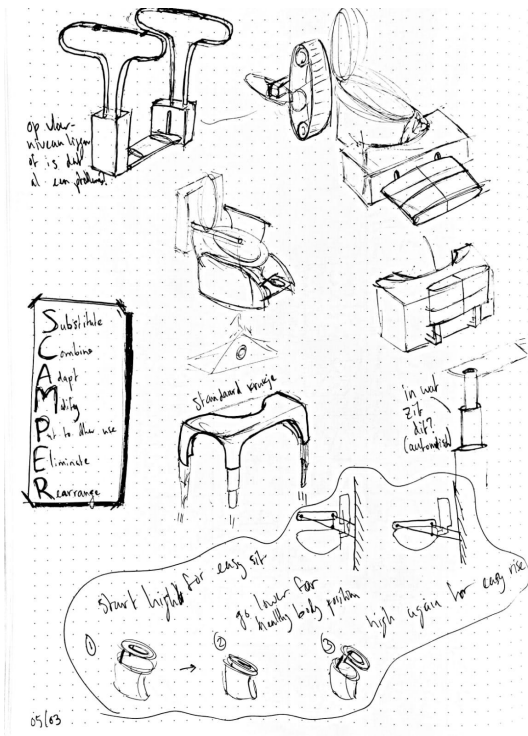 op vloer-
niveau liggen
of is dat
al een probleem?
Substitute
Combine
Adapt
Modify
Put to other use
Eliminate
Rearrange
standaard krukje
in wat
zit
dit?
(automatisch)
start high for easy sit
go lower for
healthy body position
high again for easy rise
1
2
3
05/03